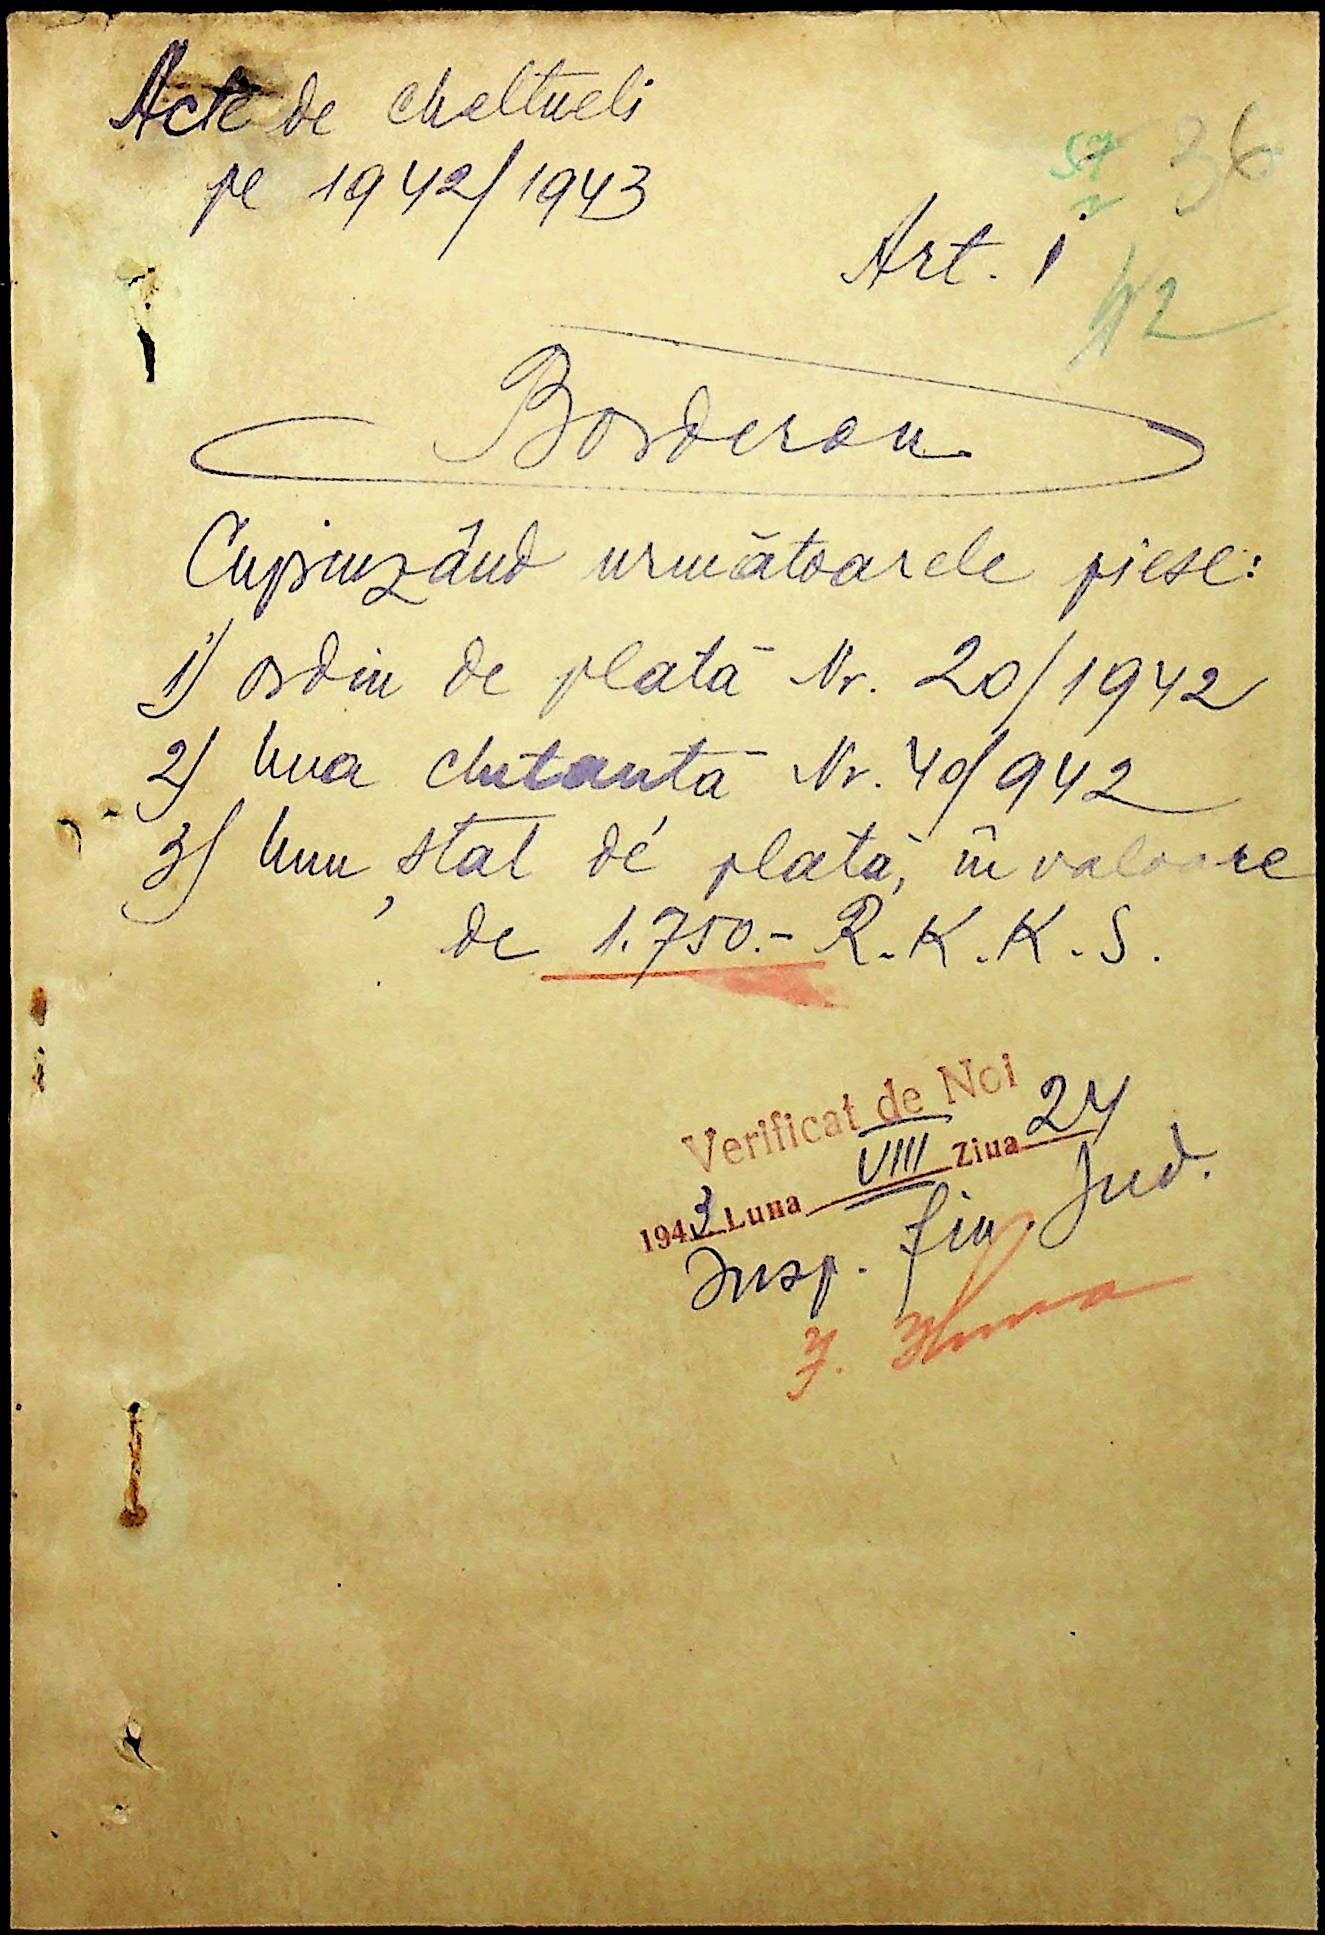 Acte de cheltueli
pe 1942/1943
57
36
Art. 1
42
Borderou
Cuprinzând următoarele piese:
1) ordin de plată Nr. 20/1942
2) Una chitanță Nr. 40/942
3) Unu stat de plată, în valoare
de 1.750.- R.K.K.S.
Verificat de Noi
1943 Luna VIII Ziua 24
Insp. fin. Jud.